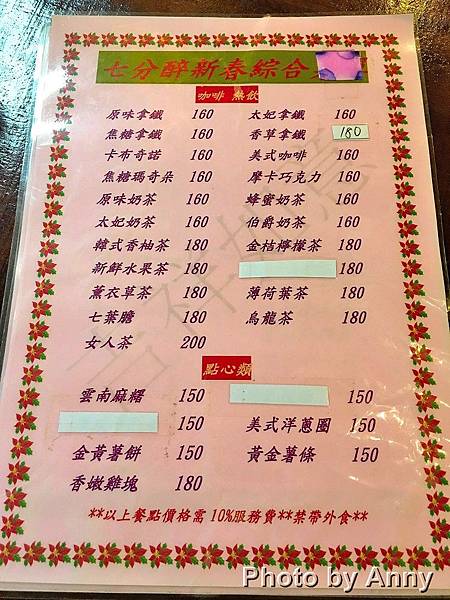 七分醉新春綜合
咖啡 熱飲
原味拿鐵 160 太妃拿鐵 160
焦糖拿鐵 160 香草拿鐵 180
卡布奇諾 160 美式咖啡 160
焦糖瑪奇朵 160 摩卡巧克力 160
原味奶茶 160 蜂蜜奶茶 160
太妃奶茶 160 伯爵奶茶 160
韓式香柚茶 180 金桔檸檬茶 180
新鮮水果茶 180 180
薰衣草茶 180 薄荷葉茶 180
七葉膽 180 烏龍茶 180
女人茶 200
點心類
雲南麻糬 150 150
150 美式洋蔥圈 150
金黃薯餅 150 黃金薯條 150
香嫩雞塊 180
**以上餐點價格需 10%服務費**禁帶外食**
Photo by Anny